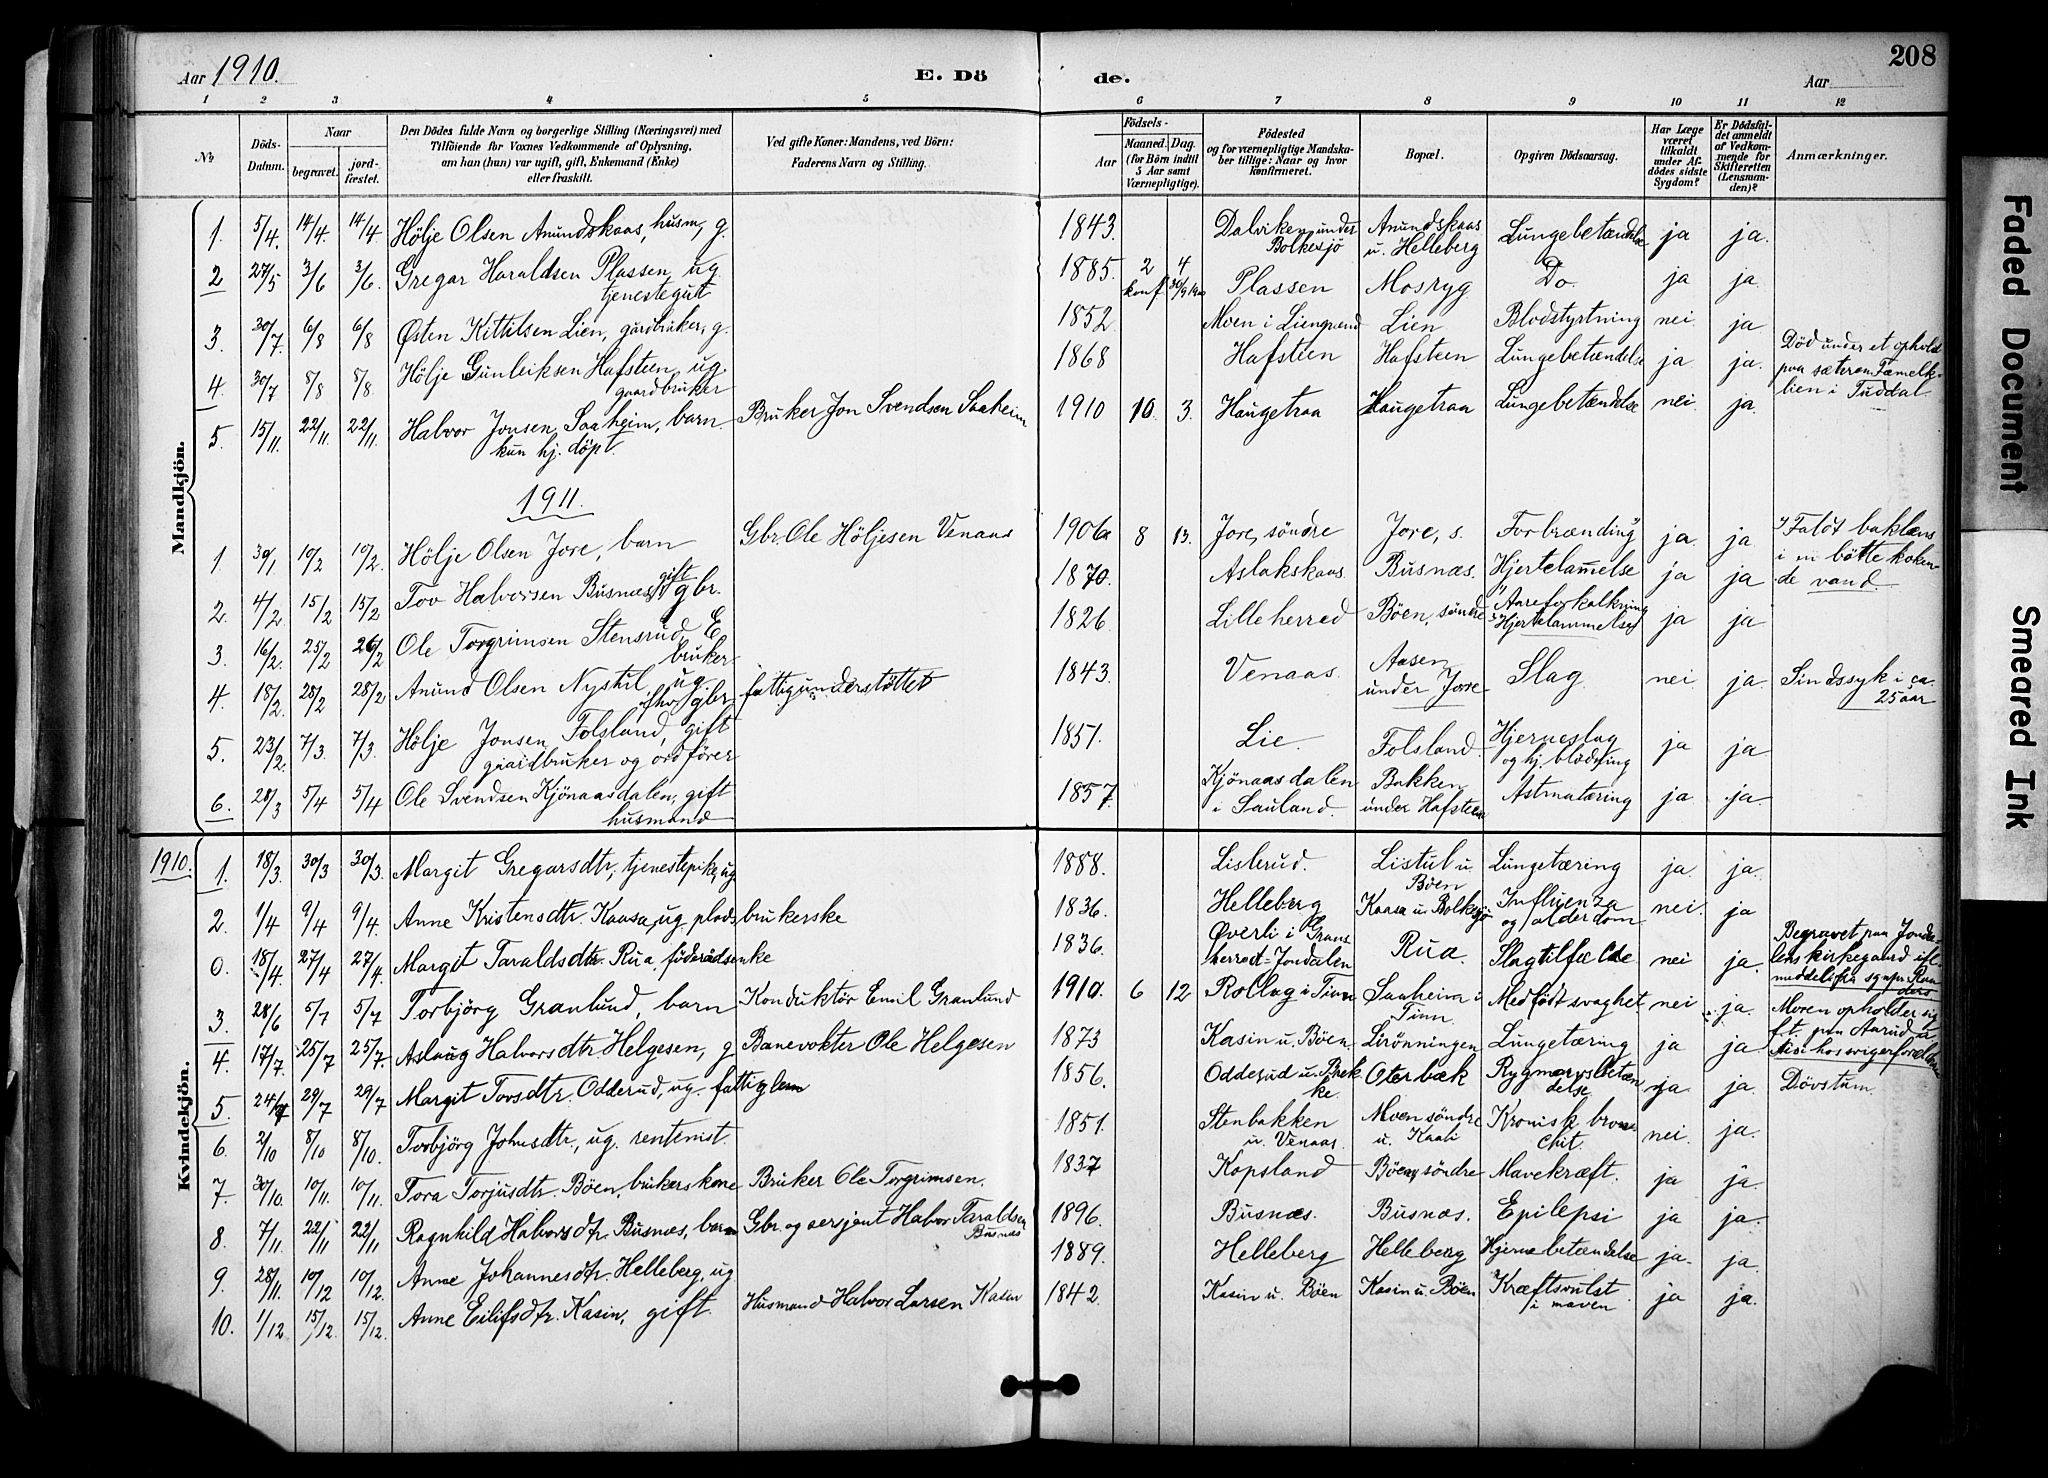 Aar 1910. E. Dö de. Aar 208
1 2 3 4 5 6 7 8 9 10 11 12
No Döds-Datum. Naar begravet. jord-fæstet. Den Dödes fulde Navn og borgerlige Stilling (Næringsvei) med Tilföiende for Voxnes Vedkommende af Oplysning, om han (hun) var ugift, gift, Enkemand (Enke) eller fraskilt. Ved gifte Koner: Mandens, ved Börn: Faderens Navn og Stilling. Födsels- Aar Maaned. Dag. (for Börn indtil 5 Aar samt Værnepligtige). Födested og for værnepligtige Mandskaber tillige: Naar og hvor konfirmeret. Bopæl. Opgiven Dödsaarsag. Har Læge været tilkaldt under Afdödes sidste Sygdom? Er Dödsfaldet anmeldt af Vedkommende for Skifteretten (Lensmanden)? Anmærkninger.
Mandkjön.
1. 5/4. 14/4. 14/4 Hölje Olsen Anundskaas, husm, g. 1843. Dalviken under Bolkesjö Anundskaas u. Helleberg Lungebetændelse ja ja.
2 27/5 3/6 3/6. Gregar Haraldsen Plassen, ug. tjenestegut 1885. 2 4 konf. 30/9 1900 Plassen Mosryg Do. ja ja.
3. 30/7. 6/8 6/8 Østen Kittilsen Lien, gårdbruker, g. 1852 Moen i Liengrend Lien Blodstyrtning nei ja
4. 30/7 8/8 8/8. Hölje Gunleiksen Hafsteen, ug. gaardbruker 1868 Hafsteen Hafsteen Lungebetændelse ja ja. Död under et ophold paa sæteren Fæmelklien i Tuddal
5. 15/11. 22/11. 22/11. Halvor Jonsen Saaheim, barn. kun hj. döpt. Bruker Jon Svendsen Saaheim 1910 10. 3. Haugetraa Haugetraa Lungebetændelse nei. ja.
1911.
1. 30/1 10/2 10/2. Hölje Olsen Jore, barn Gbr. Ole Höljesen Venaas 1906 8 13. Jore, söndre Jore, s. Forbrænding ja. ja. Faldt baklæns i en bötte kokende vand.
2. 4/2 15/2 15/2 Tov Halvorsen Busnæs, gift gbr. 1870. Aslakskaas Busnæs. Hjertelammelse ja ja
3. 16/2. 25/2 26/2 Ole Torgrimsen Stensrud, E bruker. 1826. Lilleherred Böen, söndre Aareforkalkning Hjertelammelse ja ja
4. 18/2. 28/2 28/2 Anund Olsen Nystil, ug. fhv. gbr. fattigunderstöttet 1843. Venaas. Aasen under Jore Slag nei ja. Sindssyk i ca. 25 aar
5. 23/2. 7/3 7/3. Hölje Jonsen Folsland, gift gaardbruker og ordförer 1851. Lie. Folsland. Hjerneslag og hj. blödning ja ja
6. 28/3 5/4 5/4 Ole Svendsen Kjönaasdalen, gift husmand 1857. Kjönaasdalen i Sauland. Bakken under Hafsteen Astmatæring ja ja.
Kvindekjön.
1910. 1. 18/3. 30/3 30/3. Margit Gregarsdtr, tjenestepike, ug. 1888. Lislerud. Listul u Böen Lungetæring ja. ja.
2. 1/4 9/4 9/4. Anne Kristensdtr. Kaasa, ug. pladsbrukerske 1836. Helleberg Kaasa u. Bolkesjö Influenza og alderdom nei. ja
0. 18/4. 27/4 27/4. Margit Taraldsdtr. Rua, föderådsenke 1836. Överli i Gransherred-Jondalen Rua. Slagtilfælde nei ja. Begravet paa Jondalens kirkegaard
3. 28/6 5/7 5/7 Torbjörg Granlund, barn Konduktör Emil Granlund 1910. 6 12 Rollag i Tinn Saaheim i Tinn. Medfödt svaghet nei ja. Moren opholder sig
4. 17/7. 25/7 25/7. Aslaug Halvorsdtr. Helgesen, g Banevokter Ole Helgesen 1873 Kasin u. Böen Lirönningen Lungetæring ja ja
5. 24/7 29/7 29/7 Margit Tovsdtr. Odderud, ug. fattiglem 1856. Odderud u. Brekke. Oterbæk Rygmarvsbetændelse ja ja. Dövstum
6. 2/10 8/10 8/10. Torbjörg Johnsdtr, ug. rentenist. 1851. Stenbakken u. Venaas. Moen söndre u. Kaasi Kronisk bronchit. nei. ja.
7. 30/10. 10/11. 10/11. Tora Torjusdtr. Böen, brukerskone Bruker Ole Torgrimsen. 1837 Kopsland Böen, söndre Mavekræft. ja ja.
8. 7/11. 22/11 22/11 Ragnhild Halvorsdtr. Busnæs, barn Gbr. og sersjant Halvor Taraldsen Busnæs 1896. Busnæs. Busnæs. Epilepsi ja ja.
9 28/11. 10/12 10/12. Anne Johannesdtr. Helleberg, ug 1889. Helleberg Helleberg Hjernebetændelse ja. ja.
10. 1/12 15/12. 15/12. Anne Eilifsdtr. Kasin, gift. Husmand Halvor Larsen Kasin 1842. Kasin u. Böen Kasin u. Böen Kræftsvulst i maven ja ja.
Faded Document
Smeared Ink